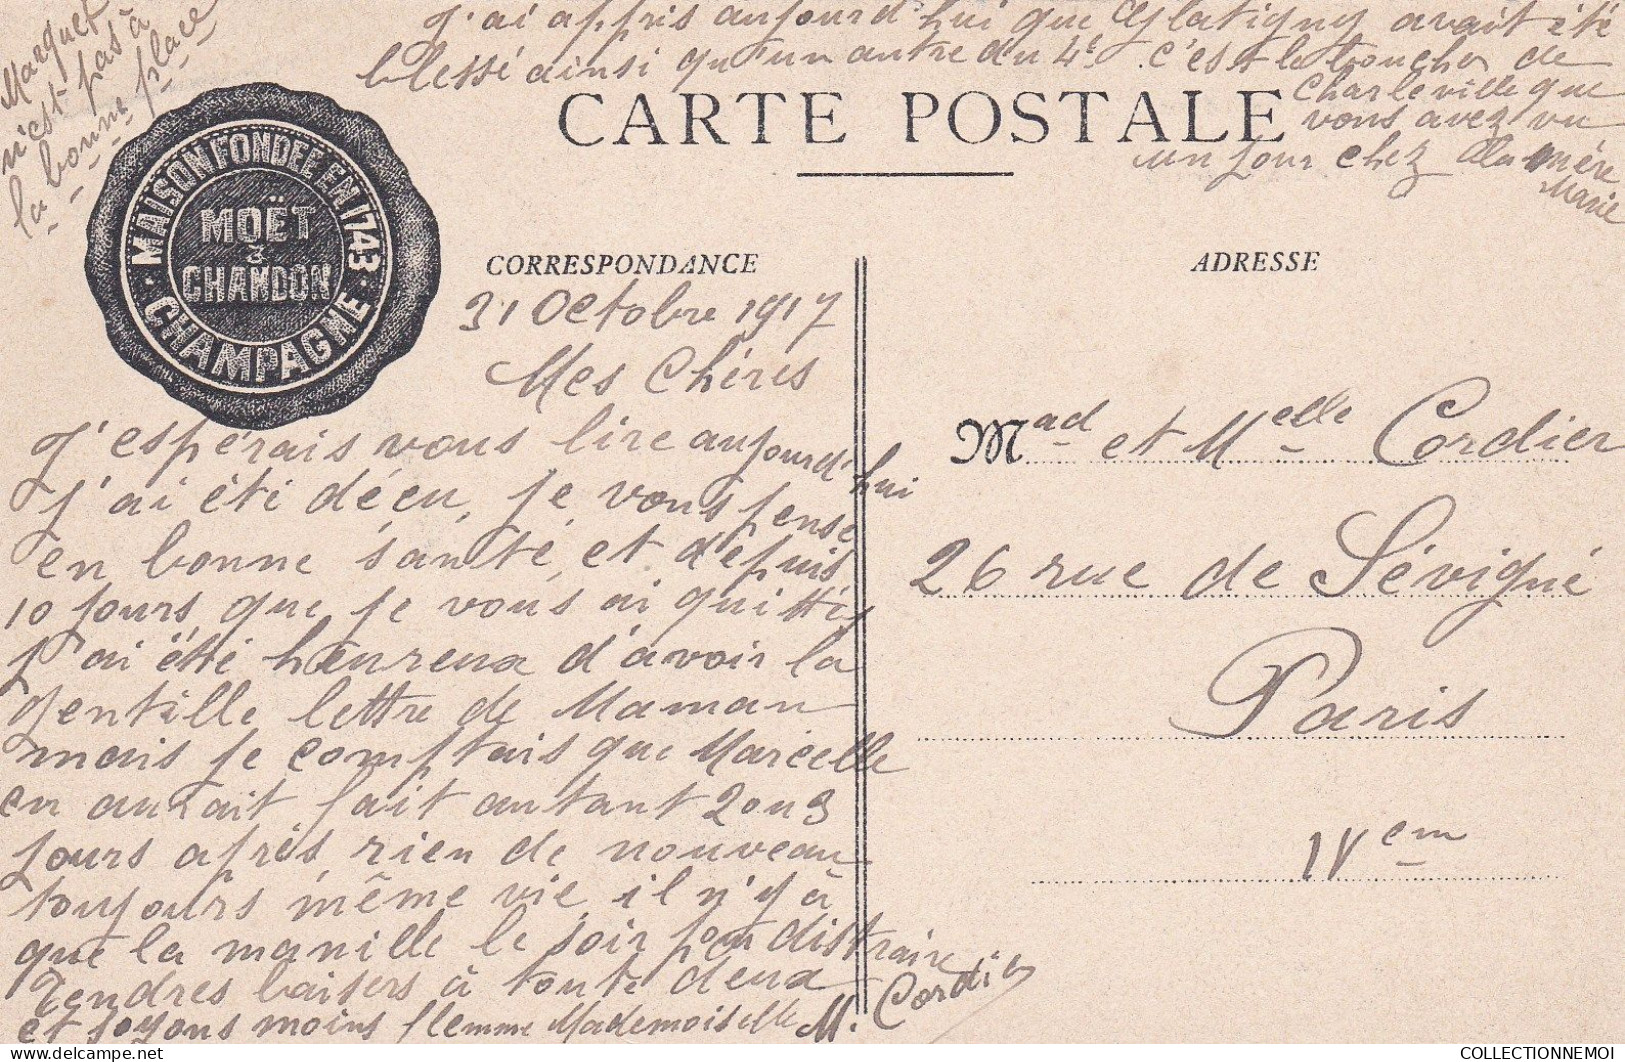 Marquet
n'est pas à
la bonne place
J'ai appris aujourd'hui que Glatigny avait été
blessé ainsi qu'un autre du 4e c'est le boucher de
Charleville que
vous avez vu
un jour chez la mère
Marie
CARTE POSTALE
MAISON FONDÉE EN 1743
MOËT
&
CHANDON
CHAMPAGNE
CORRESPONDANCE
ADRESSE
31 Octobre 1917
Mes Chères
J'espérais vous lire aujourd'hui
j'ai été déçu, je vous pense
en bonne santé, et dépuis
10 jours que je vous ai quittés
j'ai été heureux d'avoir la
gentille lettre de Maman
mais je comptais que Marcelle
en aurait fait autant 2 ou 3
jours après, rien de nouveau
toujours même vie, il n'y à
que la manille le soir pour distraire
Tendres baisers à toute deux
et soyons moins flemme Mademoiselle M. Cordier
Mad et Melle Cordier
26 rue de Sévigné
Paris
IVem
COLLECTIONNEMOI